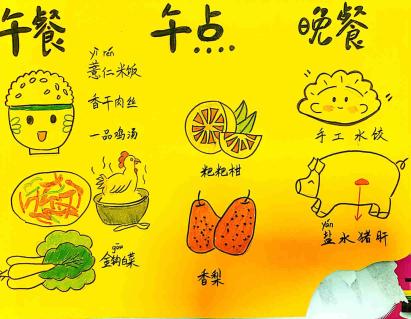 午餐
yì rén
薏仁米饭
香干肉丝
一品鸡汤
gōu
金钩白菜
午点
粑粑柑
香梨
晚餐
手工水饺
yán
盐水猪肝